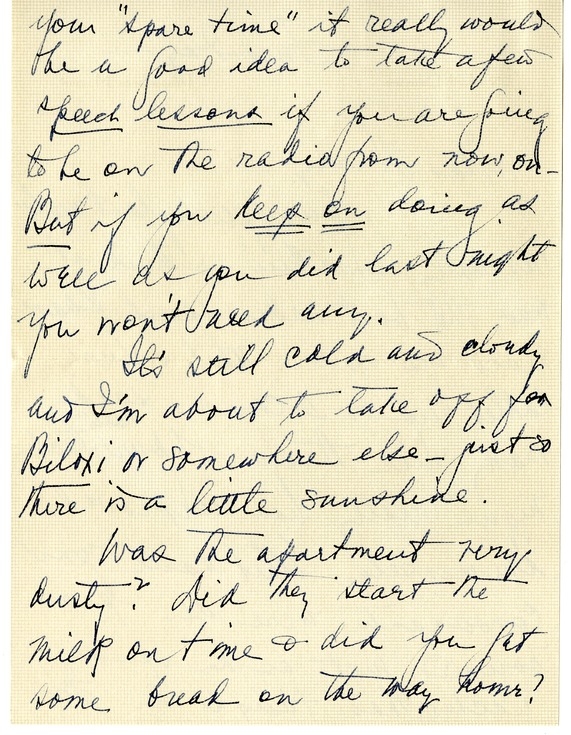 your "spare time" it really would
be a good idea to take a few
speech lessons if you are going
to be on the radio from now, on-
But if you keep on doing as
well as you did last night
you won't need any.
It's still cold and cloudy
and I'm about to take off for
Biloxi or somewhere else - just so
there is a little sunshine.
Was the apartment very
dusty? Did they start the
milk on time & did you get
some bread on the way home?